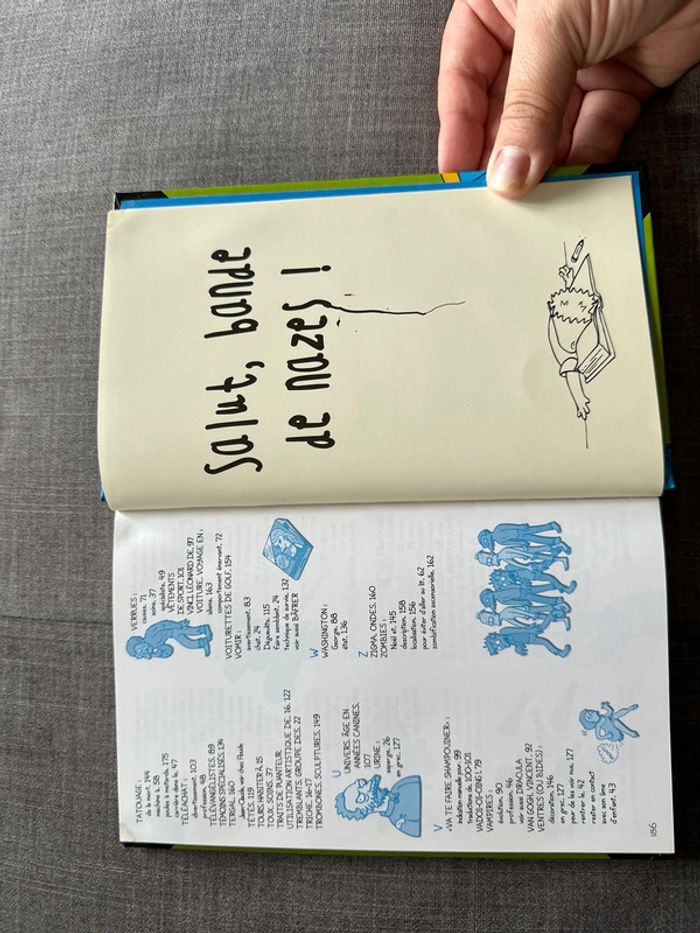 TATOUAGE :
de la mort, 144
machine à, 58
poules à moitards, 175
carrière dans le, 47
TÉLÉACHAT :
divertissement, 103
profession, 48
TÉLÉVANGÉLISTES, 89
TÉMOINS SPÉCIALISÉS, 134
TERGAL, 160
Jean-Claude, voir chez Claude
TÉTÉS, 119
TOURS, HABITER À, 15
TOUX, SOINS, 37
TRAITS DE PUANTEUR,
UTILISATION ARTISTIQUE DE, 16, 122
TREMBLANTS, GROUPE DES, 22
TRICHE, 16-17
TROMBONES, SCULPTURES, 149
U
UNIVERS, ÂGE EN
ANNÉES CANINES,
107
URINE :
asperge, 26
en grec, 127
V
« VA TE FAIRE SHAMPOUINER » :
indication manuelle pour, 99
traductions de, 100-101
VAMPIRES :
évolution, 90
profession, 46
voir aussi DRACULA
VAN GOGH, VINCENT, 92
VENTRES (OU BIDES) :
décoration, 146
en grec, 127
pour de les voir nus, 127
rentrer le, 42
rester en contact
avec son âme
d'enfant, 43
186
VERRUES :
causes, 71
soins, 37
spécialiste, 49
VÊTEMENTS
DE SPORT, 101
VINCI, LÉONARD DE, 97
VOITURE, VOYAGE EN :
aliens, 163
comportement énervant, 72
VOITURETTES DE GOLF, 154
VOMIR :
avertissement, 83
chat, 24
Dégueulita, 115
faire semblant, 24
technique de survie, 132
voir aussi BÂFRER
W
WASHINGTON :
George, 88
état, 136
Z
ZIGMA, ONDES, 160
ZOMBIES :
Noël et, 145
description, 158
localisation, 156
pour éviter d'aller au lit, 62
zombification assensorielle, 162
Salut, bande
de nazes !